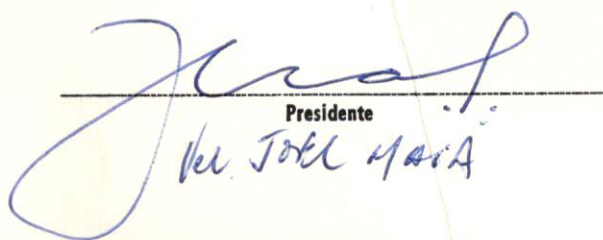 Presidente
Ver. JOEL MAIA